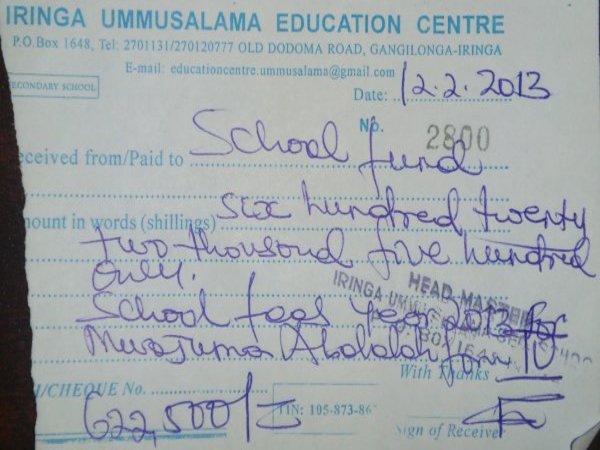 IRINGA UMMUSALAMA EDUCATION CENTRE
P.O.Box 1648, Tel: 2701131/270120777 OLD DODOMA ROAD, GANGILONGA-IRINGA
E-mail: educationcentre.ummusalama@gmail.com
ECONDARY SCHOOL
Date: 12.2.2013
No. 2800
eceived from/Paid to School fund
mount in words (shillings) six hundred twenty
two thousand five hundred
only.
HEAD MASTER
IRINGA UMMU
School fees year 2012 for
BOX 16
Mwajuma Abdalah form IV
With Thanks
/CHEQUE No.
622,500/=
TIN: 105-873-86
Sign of Receiver